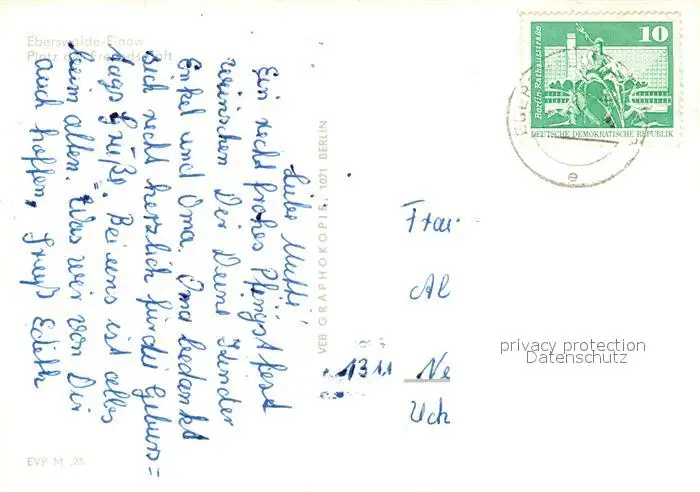 Eberswalde-Finow
Platz der Freundschaft
10
Berlin, Rathausstraße
DEUTSCHE DEMOKRATISCHE REPUBLIK
EBER
e
Liebe Mutti!
Ein recht frohes Pfingstfest
wünschen Dir Deine Kinder
Enkel und Oma. Oma bedankt
sich recht herzlich für die Geburs=
tags Grüße. Bei uns ist alles
beim alten. Was wir von Dir
auch hoffen. Gruß Edith
VEB GRAPHOKOPIE, 1071 BERLIN
Frau
Al
1311 Ne
Uck
privacy protection
Datenschutz
EVP M ,25